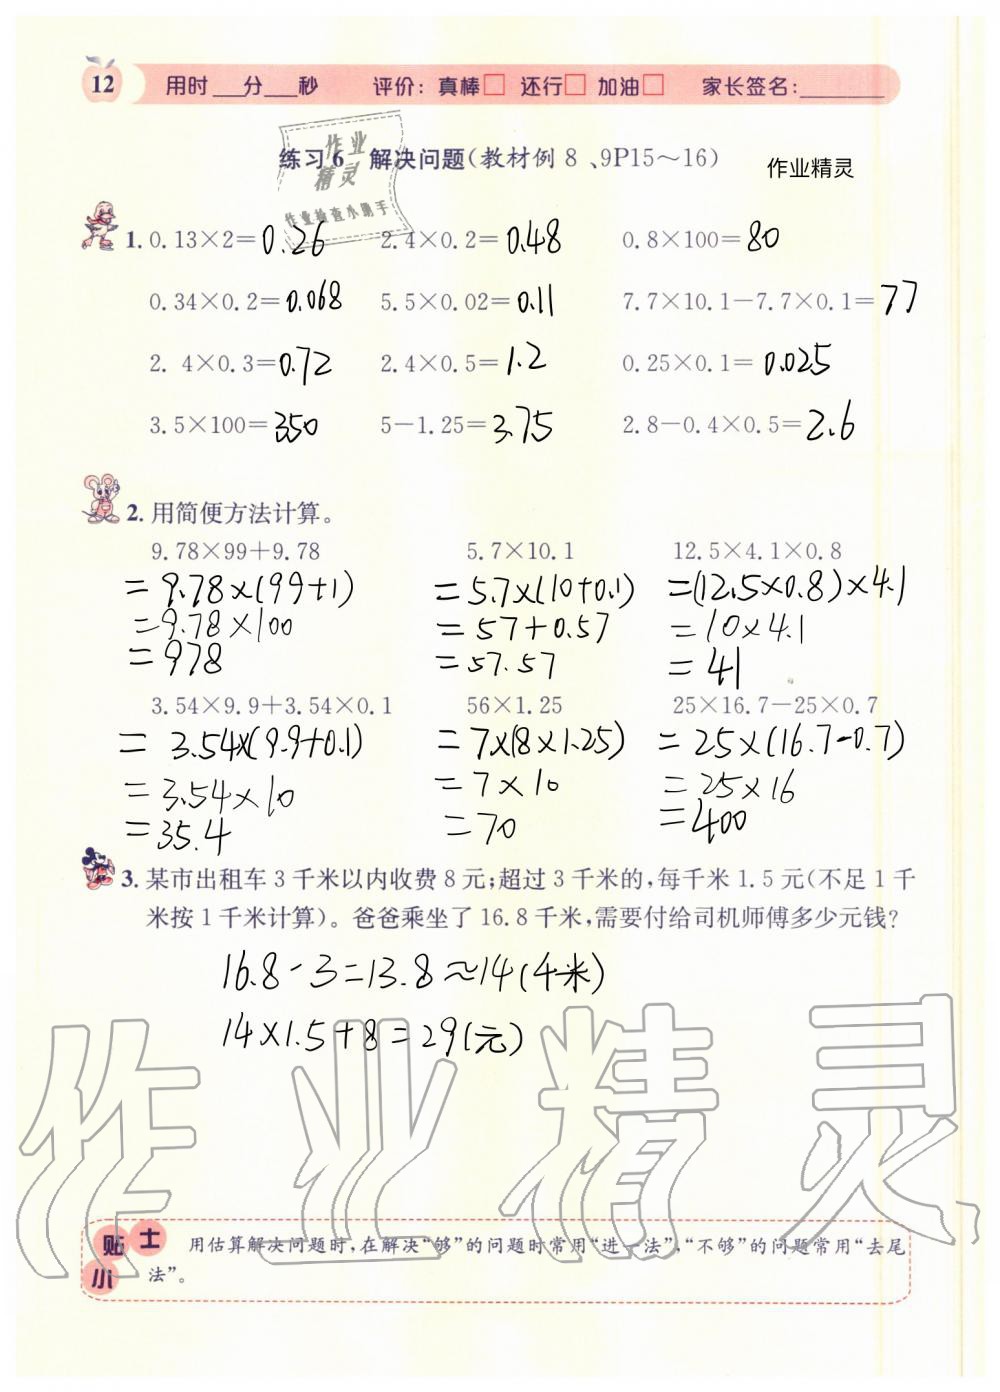 12 用时___分___秒 评价：真棒□ 还行□ 加油□ 家长签名：______
练习6 解决问题（教材例8、9P15～16） 作业精灵
作业
精灵
作业检查小助手
1. 0.13×2=0.26 2.4×0.2=0.48 0.8×100=80
0.34×0.2=0.068 5.5×0.02=0.11 7.7×10.1－7.7×0.1=77
2.4×0.3=0.72 2.4×0.5=1.2 0.25×0.1=0.025
3.5×100=350 5－1.25=3.75 2.8－0.4×0.5=2.6
2. 用简便方法计算。
9.78×99＋9.78 5.7×10.1 12.5×4.1×0.8
=9.78×(99+1) =5.7×(10+0.1) =(12.5×0.8)×4.1
=9.78×100 =57+0.57 =10×4.1
=978 =57.57 =41
3.54×9.9＋3.54×0.1 56×1.25 25×16.7－25×0.7
=3.54×(9.9+0.1) =7×(8×1.25) =25×(16.7-0.7)
=3.54×10 =7×10 =25×16
=35.4 =70 =400
3. 某市出租车3千米以内收费8元；超过3千米的，每千米1.5元（不足1千
米按1千米计算）。爸爸乘坐了16.8千米，需要付给司机师傅多少元钱？
16.8-3=13.8≈14(千米)
14×1.5+8=29(元)
作业精灵
小贴士 用估算解决问题时，在解决“够”的问题时常用“进一法”，“不够”的问题常用“去尾
法”。